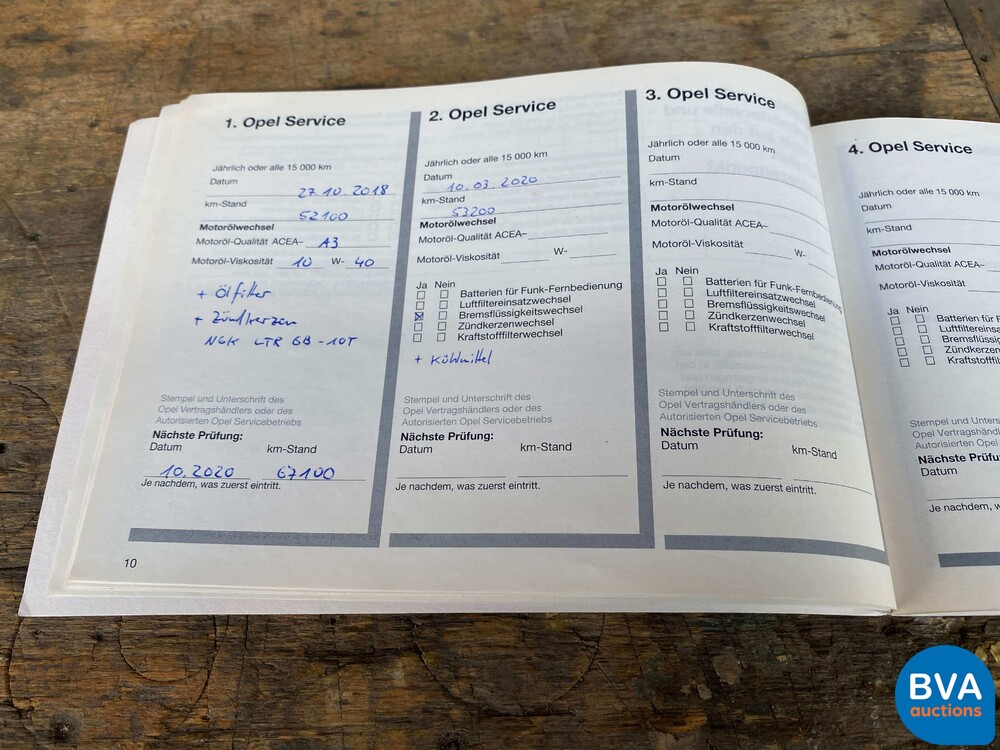 1. Opel Service
Jährlich oder alle 15 000 km
Datum
27.10.2018
km-Stand
52100
Motorölwechsel
Motoröl-Qualität ACEA– A3
Motoröl-Viskosität 10 W- 40
+ Ölfilter
+ Zündkerzen
NGK LTR 6B -10T
Stempel und Unterschrift des
Opel Vertragshändlers oder des
Autorisierten Opel Servicebetriebs
Nächste Prüfung:
Datum km-Stand
10.2020 67100
Je nachdem, was zuerst eintritt.
10
2. Opel Service
Jährlich oder alle 15 000 km
Datum
10.03.2020
km-Stand
53200
Motorölwechsel
Motoröl-Qualität ACEA–
Motoröl-Viskosität W-
Ja Nein
Batterien für Funk-Fernbedienung
Luftfiltereinsatzwechsel
Bremsflüssigkeitswechsel
Zündkerzenwechsel
Kraftstofffilterwechsel
+ Kühlmittel
Stempel und Unterschrift des
Opel Vertragshändlers oder des
Autorisierten Opel Servicebetriebs
Nächste Prüfung:
Datum km-Stand
Je nachdem, was zuerst eintritt.
3. Opel Service
Jährlich oder alle 15 000 km
Datum
km-Stand
Motorölwechsel
Motoröl-Qualität ACEA–
Motoröl-Viskosität W-
Ja Nein
Batterien für Funk-Fernbedienung
Luftfiltereinsatzwechsel
Bremsflüssigkeitswechsel
Zündkerzenwechsel
Kraftstofffilterwechsel
Stempel und Unterschrift des
Opel Vertragshändlers oder des
Autorisierten Opel Servicebetriebs
Nächste Prüfung:
Datum km-Stand
Je nachdem, was zuerst eintritt.
4. Opel Service
Jährlich oder alle 15 000 km
Datum
km-Stand
Motorölwechsel
Motoröl-Qualität ACEA–
Motoröl-Viskosität
Ja Nein
Batterien für F
Luftfiltereins
Bremsflüssig
Zündkerzen
Kraftstofffil
Stempel und Unters
Opel Vertragshänd
Autorisierten Opel S
Nächste Prüfu
Datum
Je nachdem, w
BVA
auctions